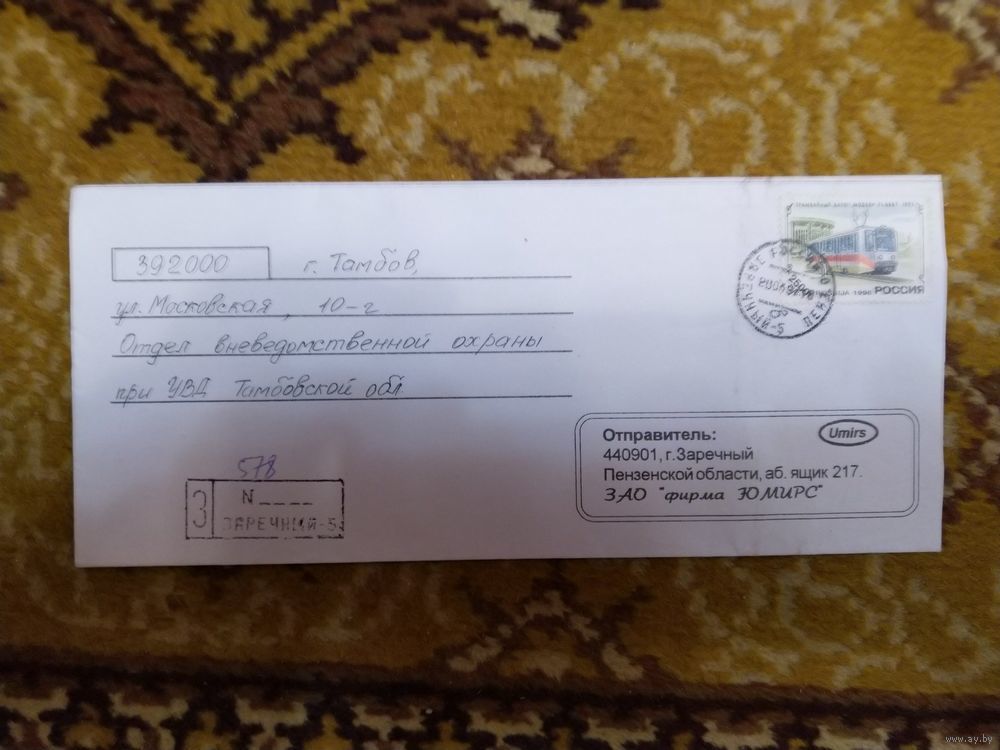 392000 г. Тамбов,
ул. Московская, 10-г
Отдел вневедомственной охраны
при УВД Тамбовской обл
578
З
N____
ЗАРЕЧНЫЙ-5
1996 РОССИЯ
Отправитель:
Umirs
440901, г.Заречный
Пензенской области, аб. ящик 217.
ЗАО "фирма ЮМИРС"
www.ay.by